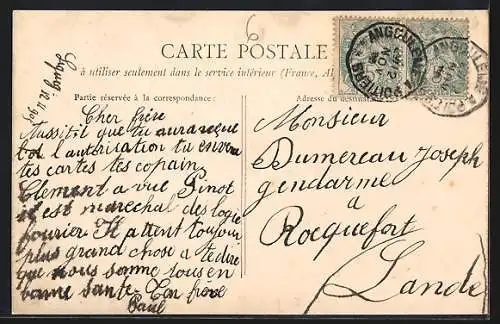 6
CARTE POSTALE
à utiliser seulement dans le service intérieur (France, Al
Partie réservée à la correspondance:
Adresse du destinataire
ANGOULÊME A POITIERS
ANGOULÊME A POITIERS
Cher frère
Aussitit que tu auras reçue
l'autorisation tu enverra
tes cartes tes copain
Clement a vue Pinot
il est marechal des logie
fourier. Il attent toujour
plus grand chose a te dire
que nous somme tous en
bonne sante. Ton frère
Paul
Monsieur
Dumereau Joseph
gendarme
a
Rocquefort
Lande